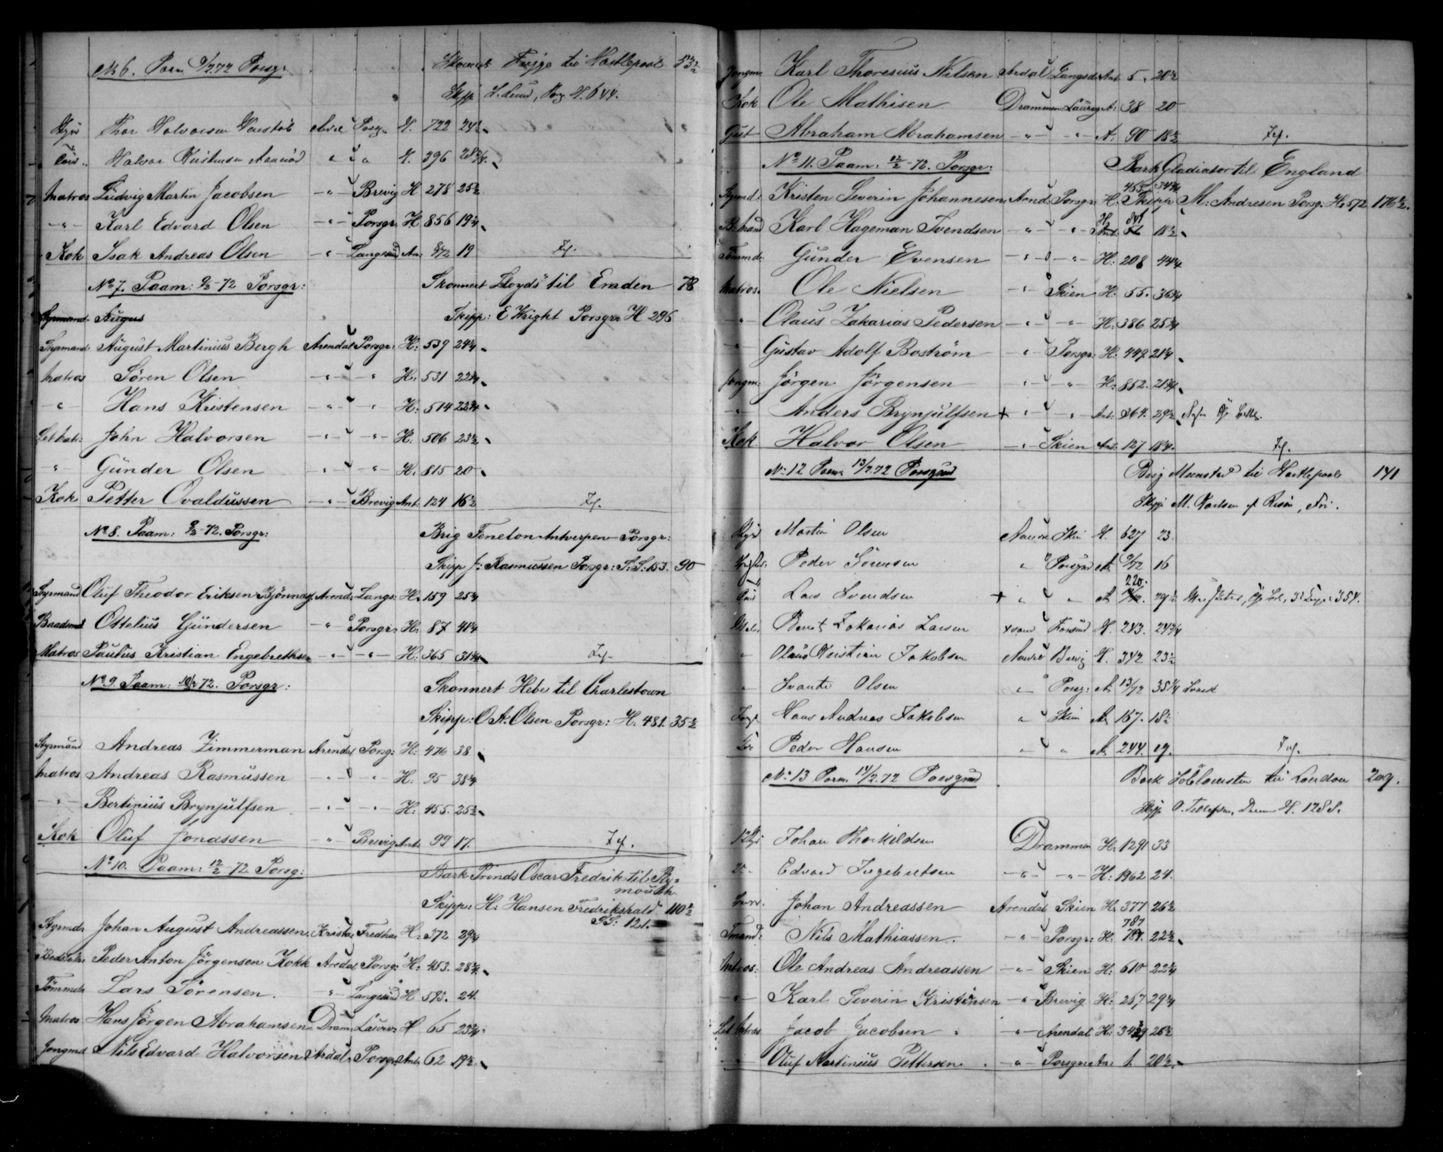 No 6. Paam 9/2 72 Porsgr. Skonnert Frigga til Hartlepool 53½
Skipp H. Lund, Porsg. H. 644.
Thor Halvorsen Porsg. H. 722 24¾
Halvor H. 296
Matros Ludvig Martin Jacobsen " " Brevig H: 278 25¾
-"- Karl Edvard Olsen " Porsgr: H: 856 19¾
Kok Isak Andreas Olsen " Langesund An: 9/72 19 Zf.
No 7. Paam: 9/2 -72 Porsgr: Skonnert Lloyds til Emden 78
Styrmand August Skipp: E Wright Porsgr: H 296
Styrmand August Martinius Bergh Arendal Porsgr: H: 539 24¾
Matros Søren Olsen " " H: 531 22¾
-"- Hans Kristensen " " H: 514 22¾
Let.mat: John Halvorsen " " H: 506 23¾
" Gunder Olsen " " H: 815 20
Kok Petter Ovaldussen " Brevig Ant. 124 16½ Zf.
No 8. Paam: 9/2 -72. Porsgr: Brig Feneton Antwerpen Porsgr:
Skipp J: Rasmussen Porsgr: S. S: 153. 90
Styrmand Oluf Theodor Eriksen Bjønnes Arend: Langs: H: 159 25¾
Baadsmd Ottelius Gundersen " Porsgr: H: 87 41¾
Matros Paulus Kristian Engebretsen " " H: 365 31¾ Zf.
No 9. Paam: 10/2 72. Porsgr: Skonnert Hebe til Charlestown
Skipp: O. A. Olsen Porsgr: H. 481. 35½
Styrmand Andreas Zimmerman Arendal Porsg: H: 476 38
Matros Andreas Rasmussen " " H: 95 38¾
-"- Bertinius Brynjulfsen " " H: 455. 25¾
Kok Oluf Jonassen " Brevig Ant. 99 17. Zf.
No 10. Paam: 12/2 -72 Porsg: Bark Prinds Oscar Fredrik til Plymouth
Skipp: H: Hansen Fredrikshald 110½
S: S: 121.
Styrmd: Johan August Andreassen Kristia Fredhal H: 572 29¾
Peder Anton Jørgensen Kokk Arendal Porsg: H: 453. 28¾
Tømmerm Lars Sørensen. " Langesund H 593. 24.
Matros Hans Jørgen Abrahamsen Dram Laurvig H 65 23¾
Jongmd Nils Edvard Halvorsen Ardal Porsgr: Ant. 62 19½
Jongm: Karl Thoresius Nilsen Ardal Langsd: Ant 5. 20¾
Kok Ole Mathisen Drammen Laurvig A: 38 20
Gut Abraham Abrahamsen " " A. 90 18¾ Zf.
No 11. Paam: 12/2 -72. Porsgr: Bark Gladiator til England
Styrmd: Kristen Severin Johannesen Arend: Porsgr: H. 455 34¾ Skipp M: Andresen Porsg. H: 572 176½
Karl Hageman Svendsen " " 18¾
Tømmd: Gunder Evensen " " H: 208 44¾
Matros. Ole Nielsen " Skien H: 55. 36¾
" Olaus Zakarias Pedersen " " H: 386 25¾
" Gustav Adolf Bostrøm " Porsgr: H. 449 21¾
Jongm: Jørgen Jørgensen " " H: 852. 21¾
" Anders Brynjulfsen + " " Ant. 264. 29¾
Kok Halvor Olsen " Skien Ant. 127 18¾ Zf.
No 12 Paam 13/2 72 Porsgrund Brig til Hartlepool 141
Skipp M. Karlsen af Risør, Fri.
Styrd Martin Olsen Arend Skien H. 627 23
Peder Sørensen " Porsgr A. 9/72 16
Lars Svendsen + " " A. 220.
Matr. Bernt Zakarias Larsen Xsand H. 243. 24¾
" Olaus Kristian Jakobsen Arendal Brevig H. 342 23½
" Svante Olsen " Porsg: A. 13/72 35¼
Jungm Hans Andreas Jakobsen " Skien A. 167. 18½
Peder Hansen " " A. 244. 19. Zf.
No 13 Paam 14/2 72 Porsgrund Bark til London 209.
Skipp O. Tellefsen, Dram H. 1288.
1ste Styr Johan Thorkildsen Drammen H: 1291 33
2 Edvard Ingebretsen " " H: 1962 24.
Johan Andreassen Arendal Skien H: 377 26¾
Tmand: Nils Mathiassen. " Porsgr: H: 787 22¾
Matros: Ole Andreas Andreassen " Skien H: 610 22¾
-"- Karl Severin Kristensen " Brevig H: 267 29¾
Let.Matros Jacob Jacobsen " Arendal H: 3429 26¾
" Oluf Martinius Pettersen. " Porsgr: An: 1. 20¾